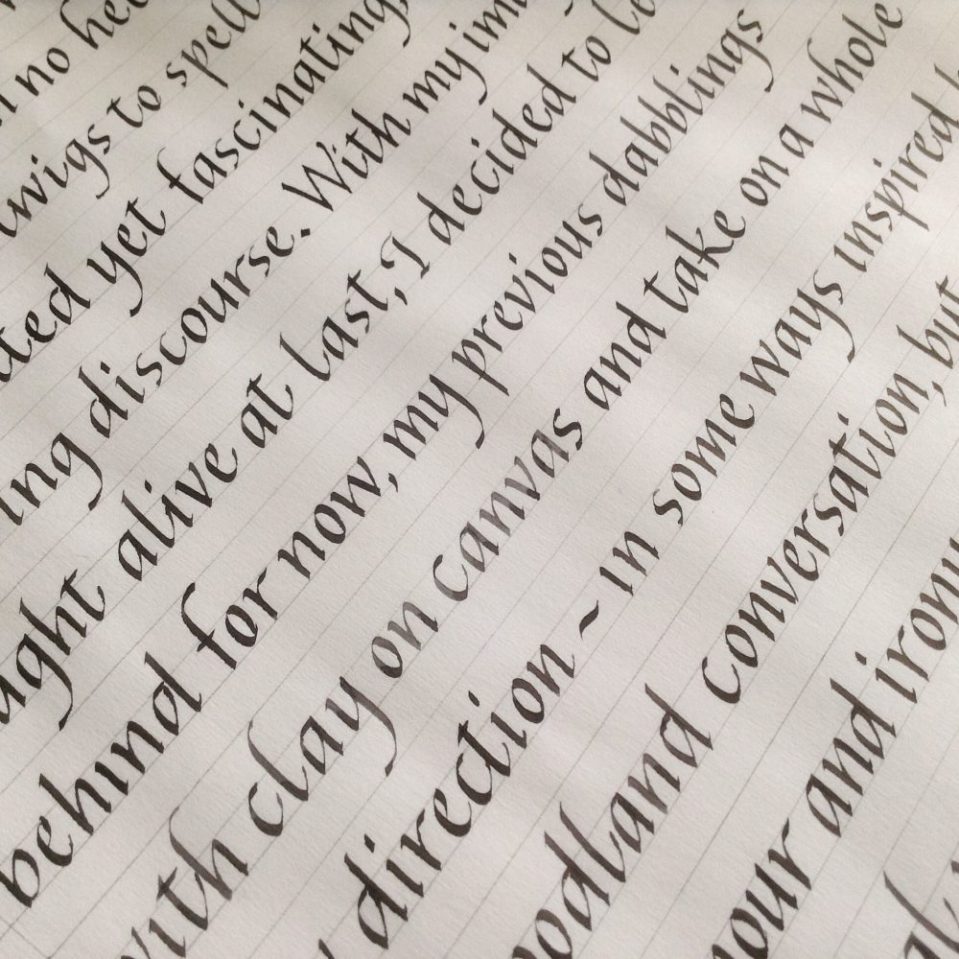 no
twigs to spell
yet fascinating
ing discourse. With my im
ught alive at last, I decided to le
behind for now, my previous dabblings
with clay on canvas and take on a whole
direction ~ in some ways inspired
odland conversation, but
our and irony